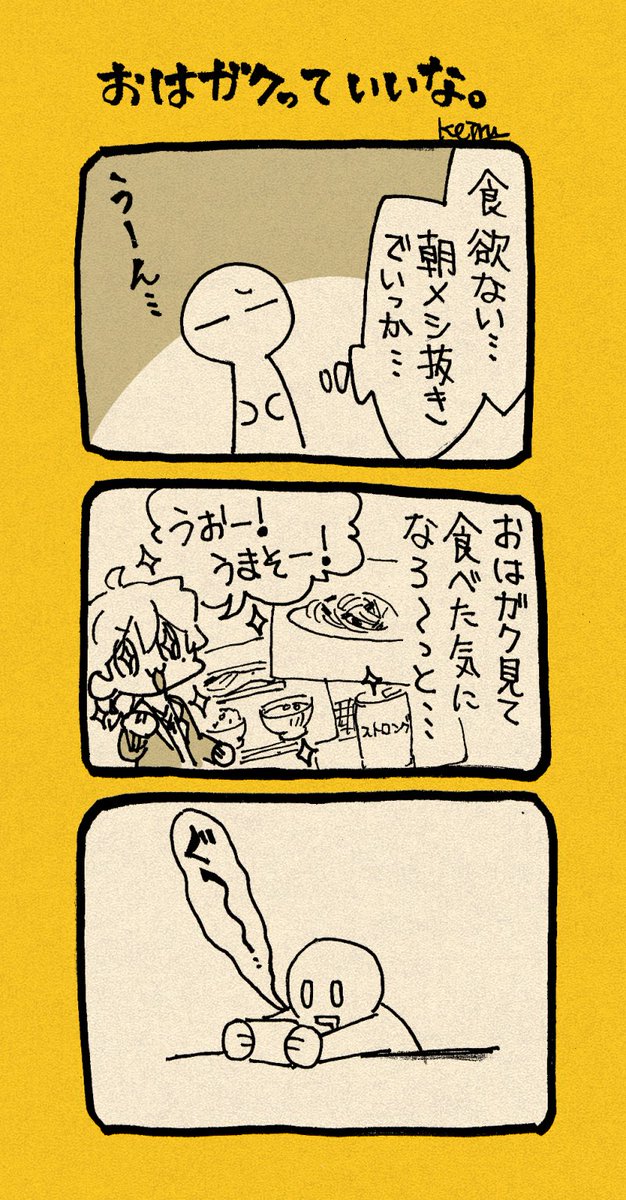 おはガクっていいな。
食欲ない…
朝メシ抜き
でいっか…
うーん…
おはガク見て
食べた気に
なろ〜っと…
うおー!
うまそー!
ストロング
ぐぅ〜…